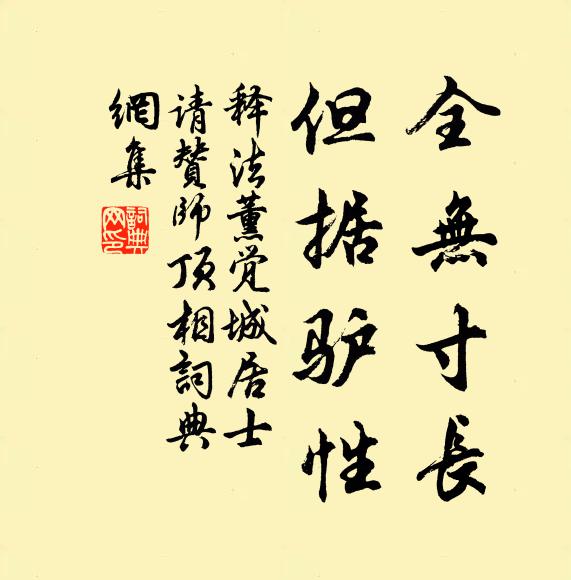 全無寸長
但据驴性
释法薰觉城居士
请赞师顶相詞典
網集
詞典网印